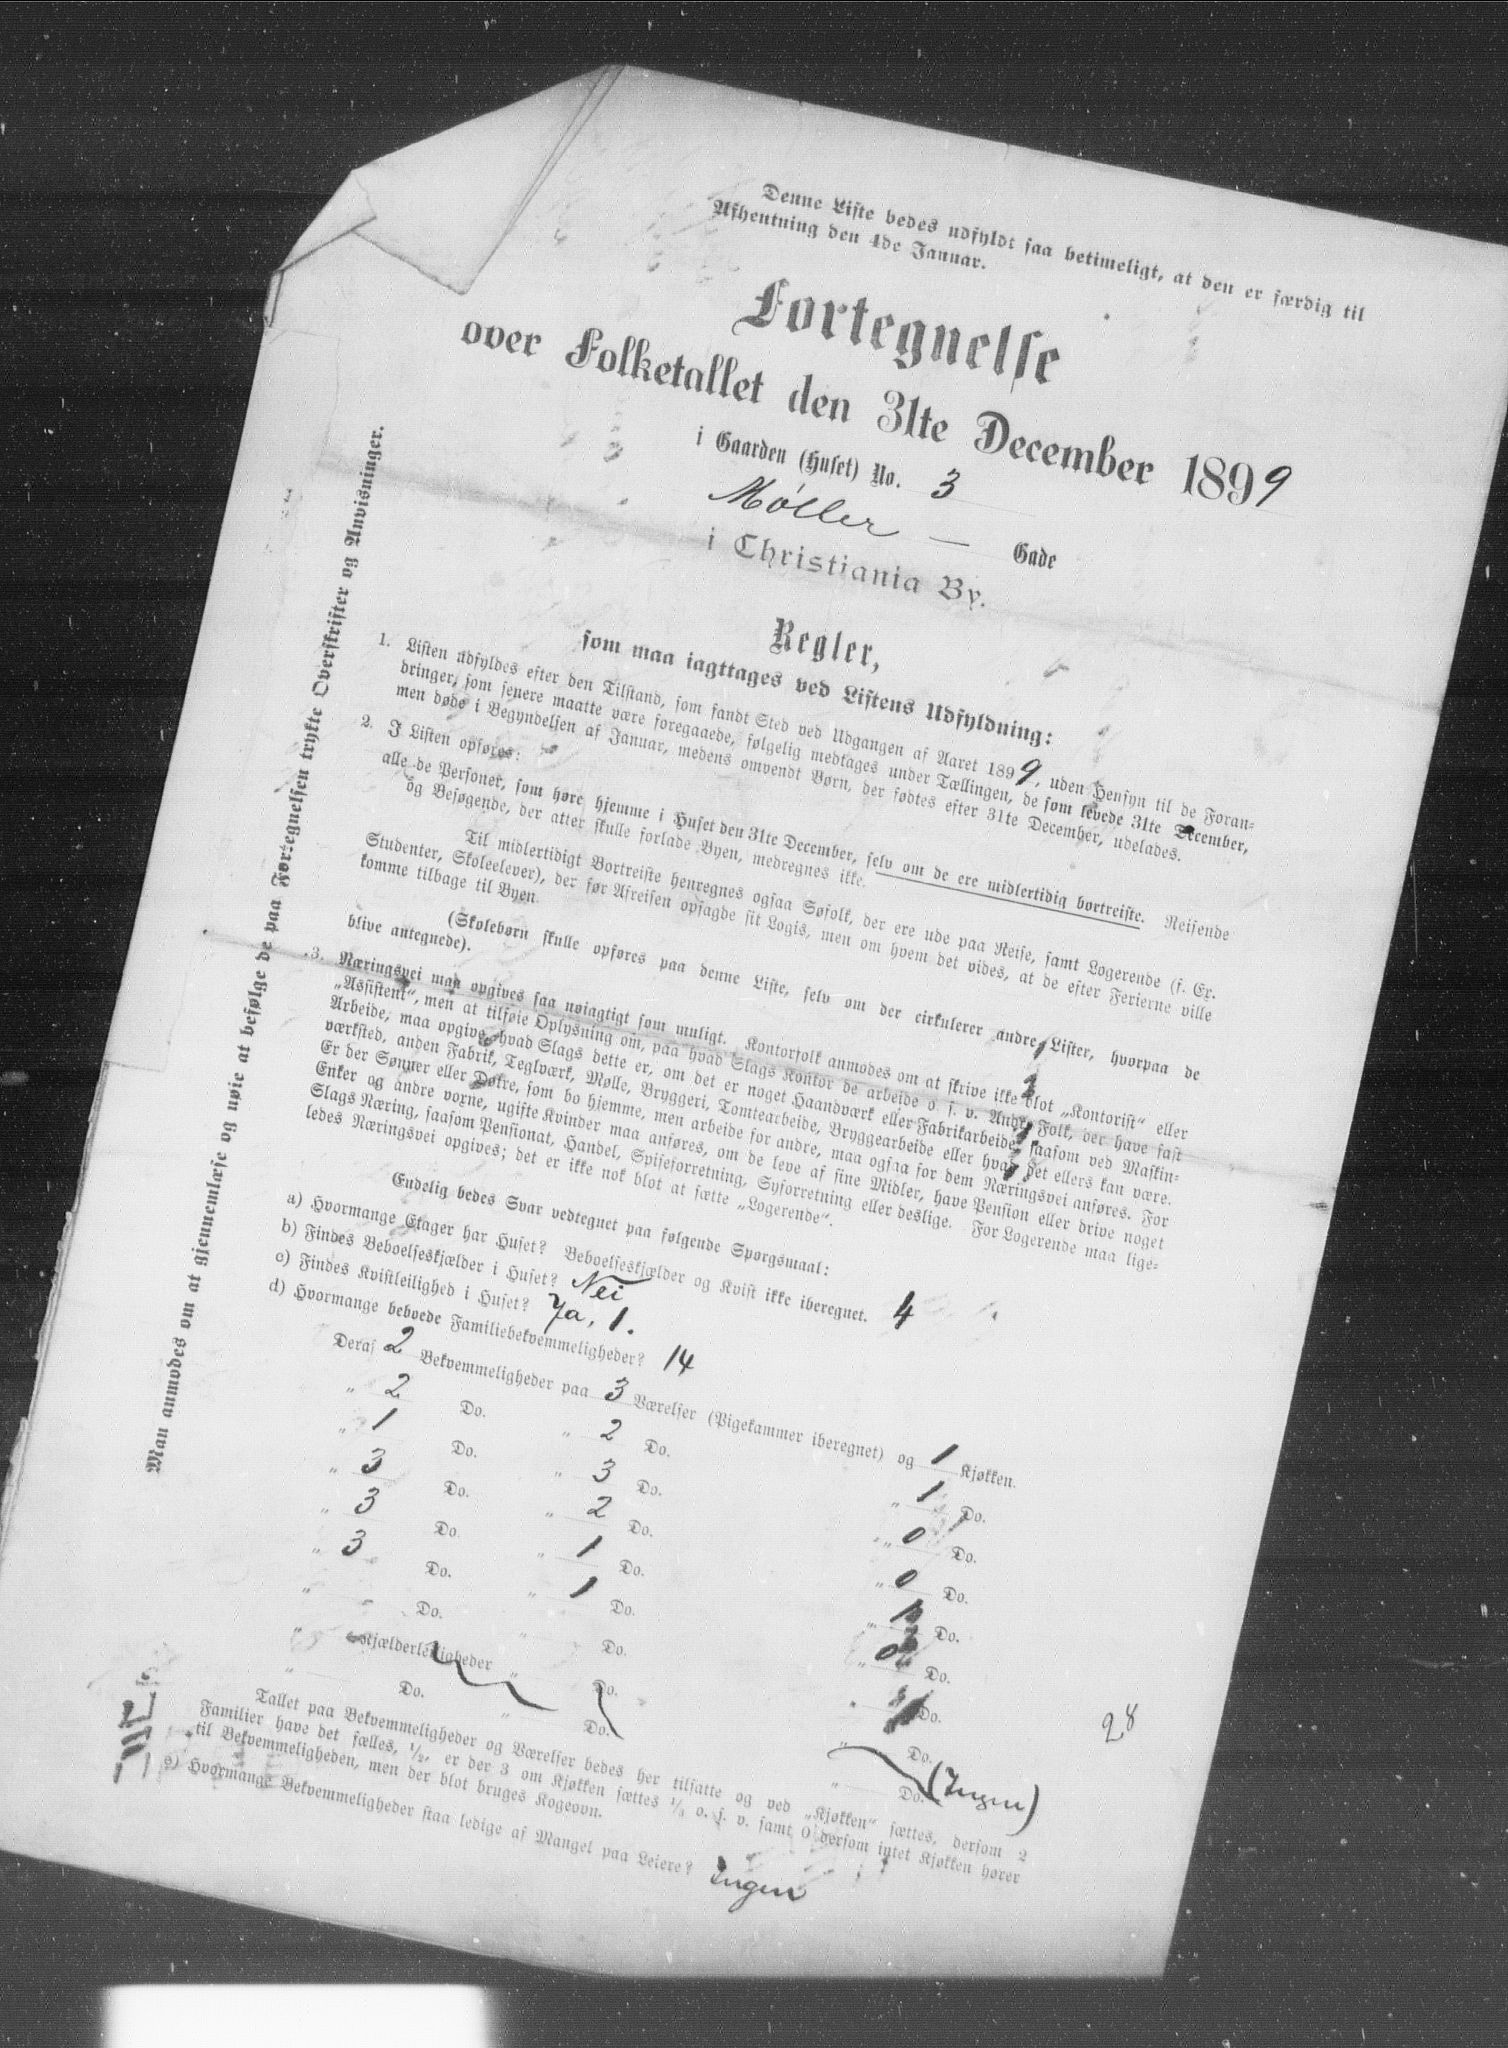 Denne Liste bedes udfyldt saa betimeligt, at den er færdig til
Afhentning den 4de Januar.
Fortegnelse
over Folketallet den 31te December 1899
i Gaarden (Huset) No. 3
Møller — Gade
i Christiania By.
Regler,
som maa iagttages ved Listens Udfyldning:
1. Listen udfyldes efter den Tilstand, som fandt Sted ved Udgangen af Aaret 1899, uden Hensyn til de Foran-
dringer, som senere maatte være foregaaede, følgelig medtages under Tællingen, de som levede 31te December,
men døde i Begyndelsen af Januar, medens omvendt Børn, der fødtes efter 31te December, udelades.
2. I Listen opføres:
alle de Personer, som høre hjemme i Huset den 31te December, selv om de ere midlertidig bortreiste. Reisende
og Besøgende, der atter skulle forlade Byen, medregnes ikke.
Til midlertidigt Bortreiste henregnes ogsaa Søfolk, der ere ude paa Reise, samt Logerende (f. Ex.
Studenter, Skoleelever), der før Afreisen opsagde sit Logis, men om hvem det vides, at de efter Ferierne ville
komme tilbage til Byen.
(Skolebørn skulle opføres paa denne Liste, selv om der cirkulerer andre Lister, hvorpaa de
blive antegnede).
3. Næringsvei maa opgives saa nøiagtigt som muligt. Kontorfolk anmodes om at skrive ikke blot „Kontorist“ eller
„Assistent“, men at tilføie Oplysning om, paa hvad Slags Kontor de arbeide o. s. v. Andre Folk, der have fast
Arbeide, maa opgive, hvad Slags dette er, om det er noget Haandværk eller Fabrikarbeide, saasom ved Maskin-
værksted, anden Fabrik, Teglværk, Mølle, Bryggeri, Tomtearbeide, Bryggearbeide eller hvad det ellers kan være.
Er der Sønner eller Døtre, som bo hjemme, men arbeide for andre, maa ogsaa for dem Næringsvei anføres. For
Enker og andre voxne, ugifte Kvinder maa anføres, om de leve af sine Midler, have Pension eller drive noget
Slags Næring, saasom Pensionat, Handel, Spiseforretning, Syforretning eller deslige. For Logerende maa lige-
ledes Næringsvei opgives; det er ikke nok blot at sætte „Logerende“.
Endelig bedes Svar vedtegnet paa følgende Spørgsmaal:
a) Hvormange Etager har Huset? Beboelseskjælder og Kvist ikke iberegnet. 4
b) Findes Beboelseskjælder i Huset? Nei
c) Findes Kvistleilighed i Huset? Ja, 1.
d) Hvormange beboede Familiebekvemmeligheder? 14
Deraf 2 Bekvemmeligheder paa 3 Værelser (Pigekammer iberegnet) og 1 Kjøkken.
„ 2 Do. „ 2 Do. „ 1 Do.
„ 1 Do. „ 3 Do. „ 0 Do.
„ 3 Do. „ 2 Do. „ 0 Do.
„ 3 Do. „ 1 Do. „ Do.
„ 3 Do. „ 1 Do. „ 0 Do.
„ Do. „ Do. „ Do.
„ Kjælderleiligheder „ Do. „ Do. (Ingen)
„ Do. „ Do. „ Do.
28
Tallet paa Bekvemmeligheder og Værelser bedes her tilsatte og ved „Kjøkken“ sættes, dersom 2
Familier have det fælles, 1/2, er der 3 om Kjøkken sættes 1/3 o. s. v. samt 0 dersom intet Kjøkken hører
til Bekvemmeligheden, men der blot bruges Kogeovn.
e) Hvormange Bekvemmeligheder staa ledige af Mangel paa Leiere? Ingen
Man anmodes om at gjennemlæse og nøie at befølge de paa Fortegnelsen trykte Overskrifter og Anvisninger.